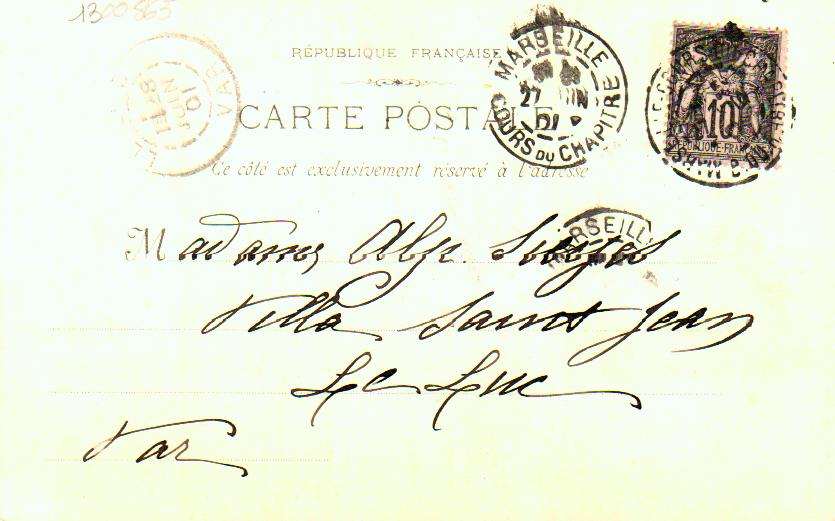 1300865
RÉPUBLIQUE FRANÇAISE
CARTE POSTALE
Ce côté est exclusivement réservé à l'adresse
MARSEILLE
27 JUIN
01
COURS DU CHAPITRE
10
RÉPUBLIQUE FRANÇAISE
28
JUIN
01
VAR
MARSEILLE
Madame Alp.
Villa Saint Jean
Le Luc
Var